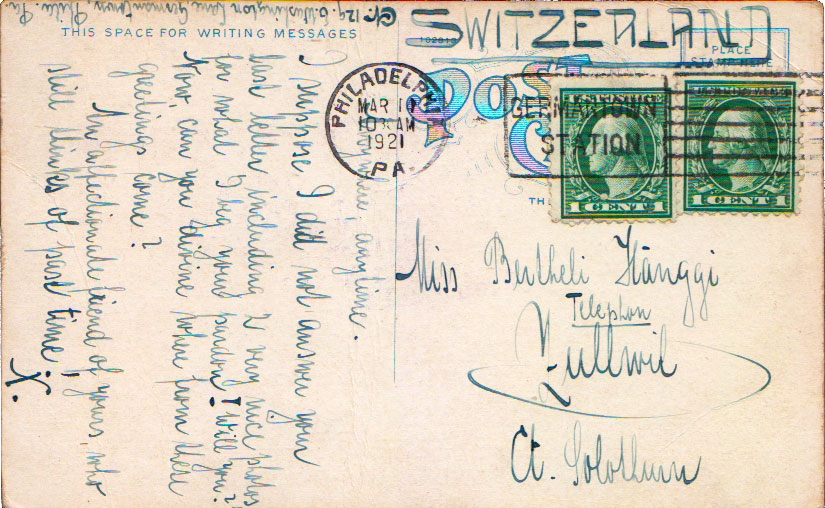 129, E. Washington Lane Germantown, Phila. Pa.
SWITZERLAND
THIS SPACE FOR WRITING MESSAGES
PLACE
STAMP HERE
POST
PHILADELPHIA
MAR 11
10 AM
1921
PA.
GERMANTOWN
STATION
1 CENT 1
1 CENT 1
TH
anytime, anytime.
I suppose I did not answer your
last letter including 2 very nice photos
for what I beg your pardon! Will you?
Now, can you divine where from these
greetings come?
An affectionate friend of yours, who
still thinks of past time!
X.
Miss Bertheli Hänggi
Telephon
Zullwil
Ct. Solothurn